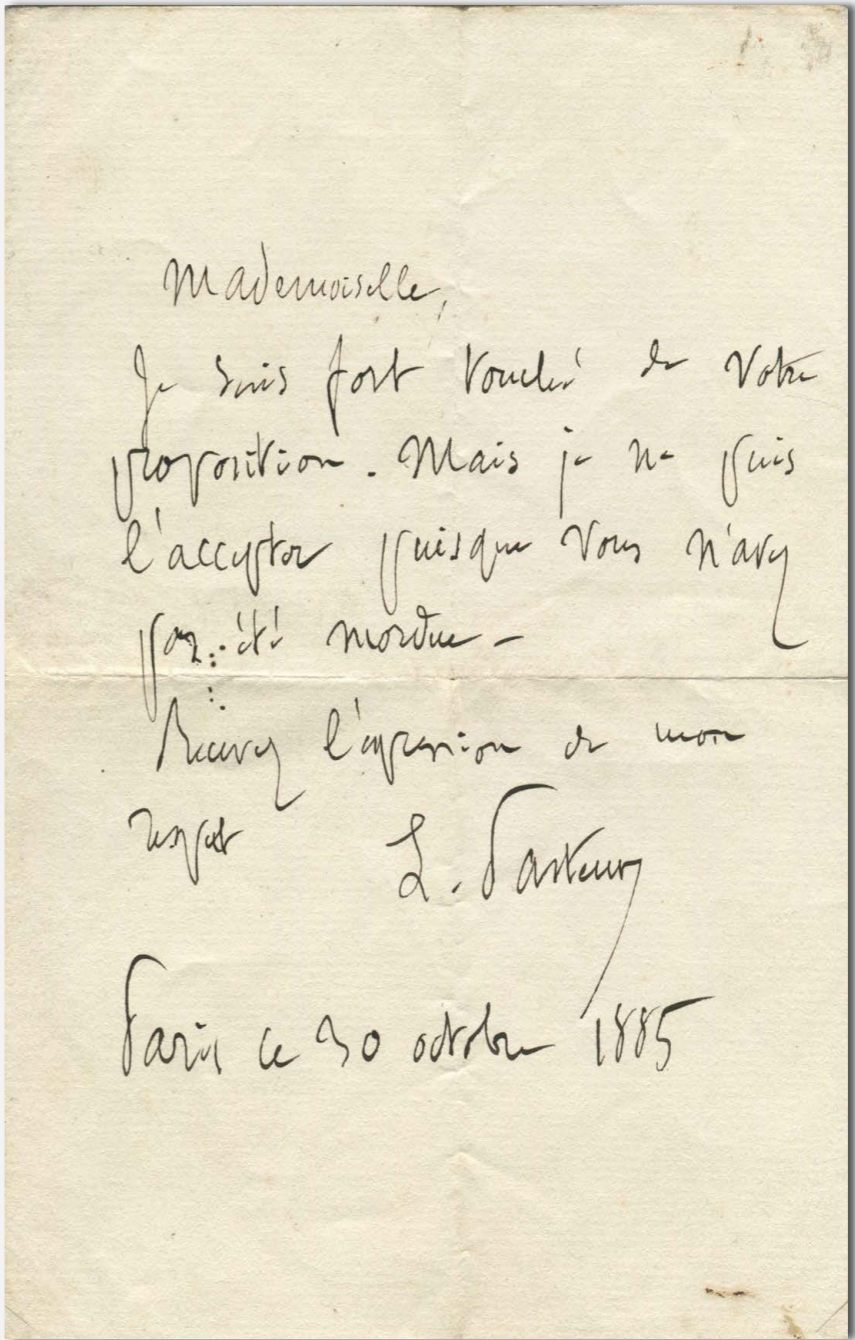 Mademoiselle,
Je suis fort touché de votre
proposition. Mais je ne puis
l'accepter puisque vous n'avez
pas été mordue –
Recevez l'expression de mon
respect L. Pasteur
Paris ce 30 octobre 1885